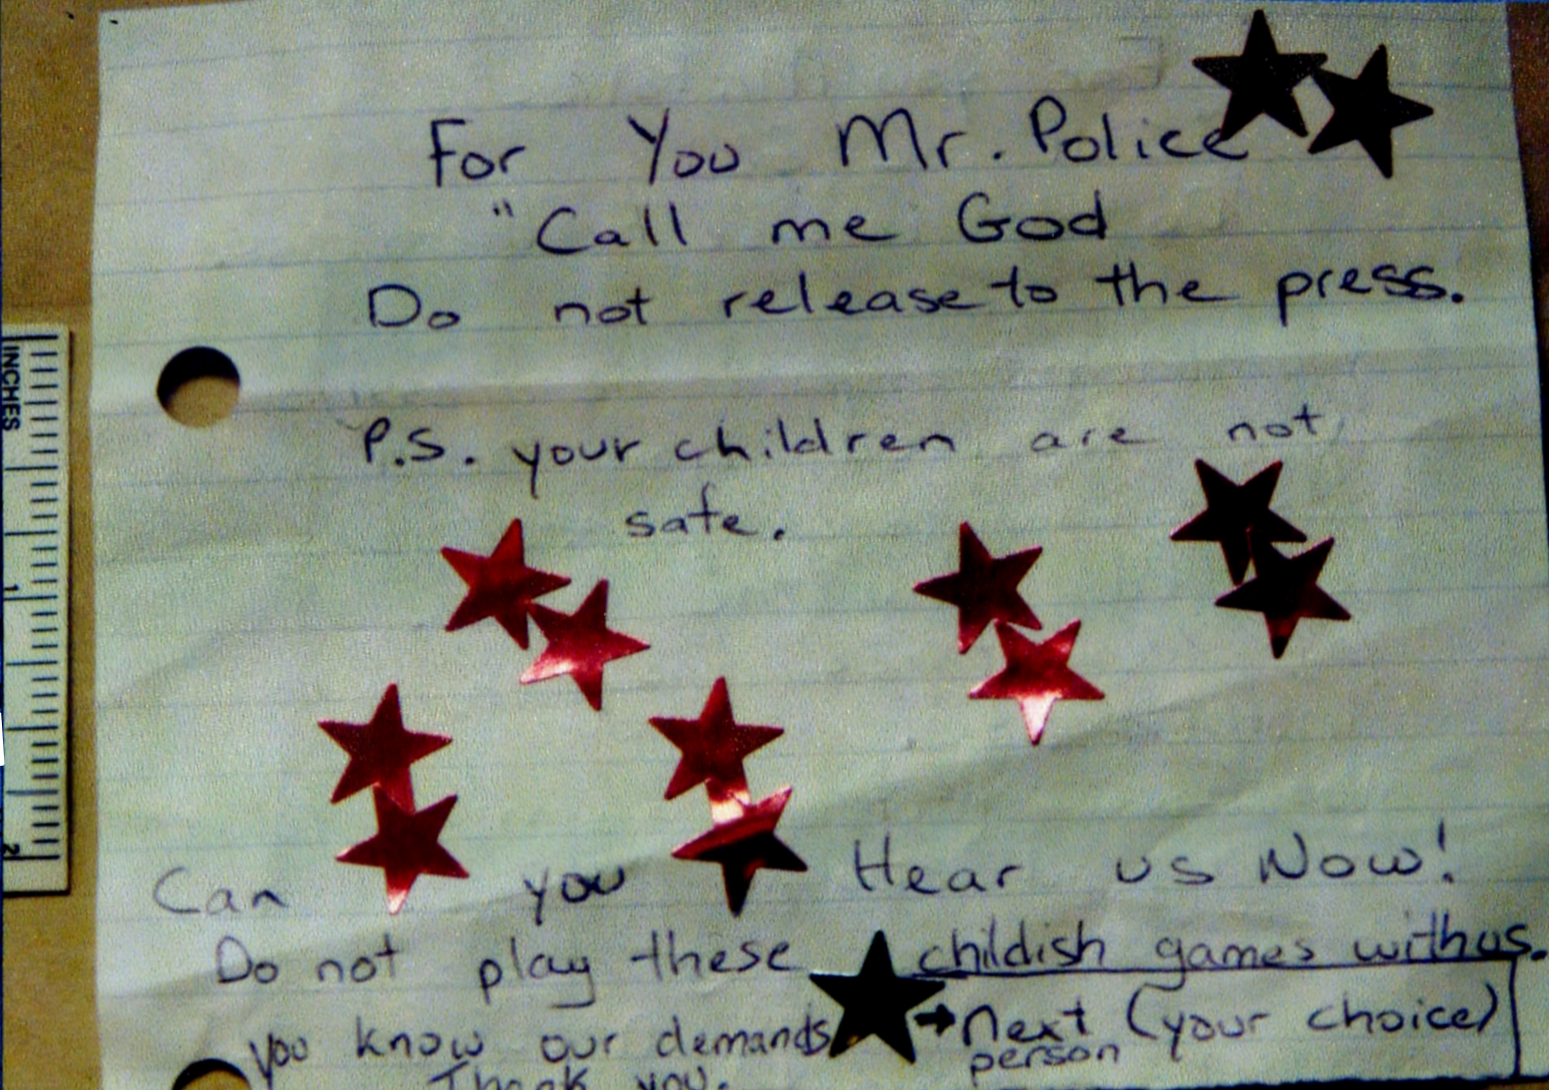 For You Mr. Police
"Call me God
Do not release to the press.
P.S. your children are not
safe.
Can you Hear us Now!
Do not play these childish games with us.
You know our demands → Next (your choice)
person
Thank you.
INCHES
1
2